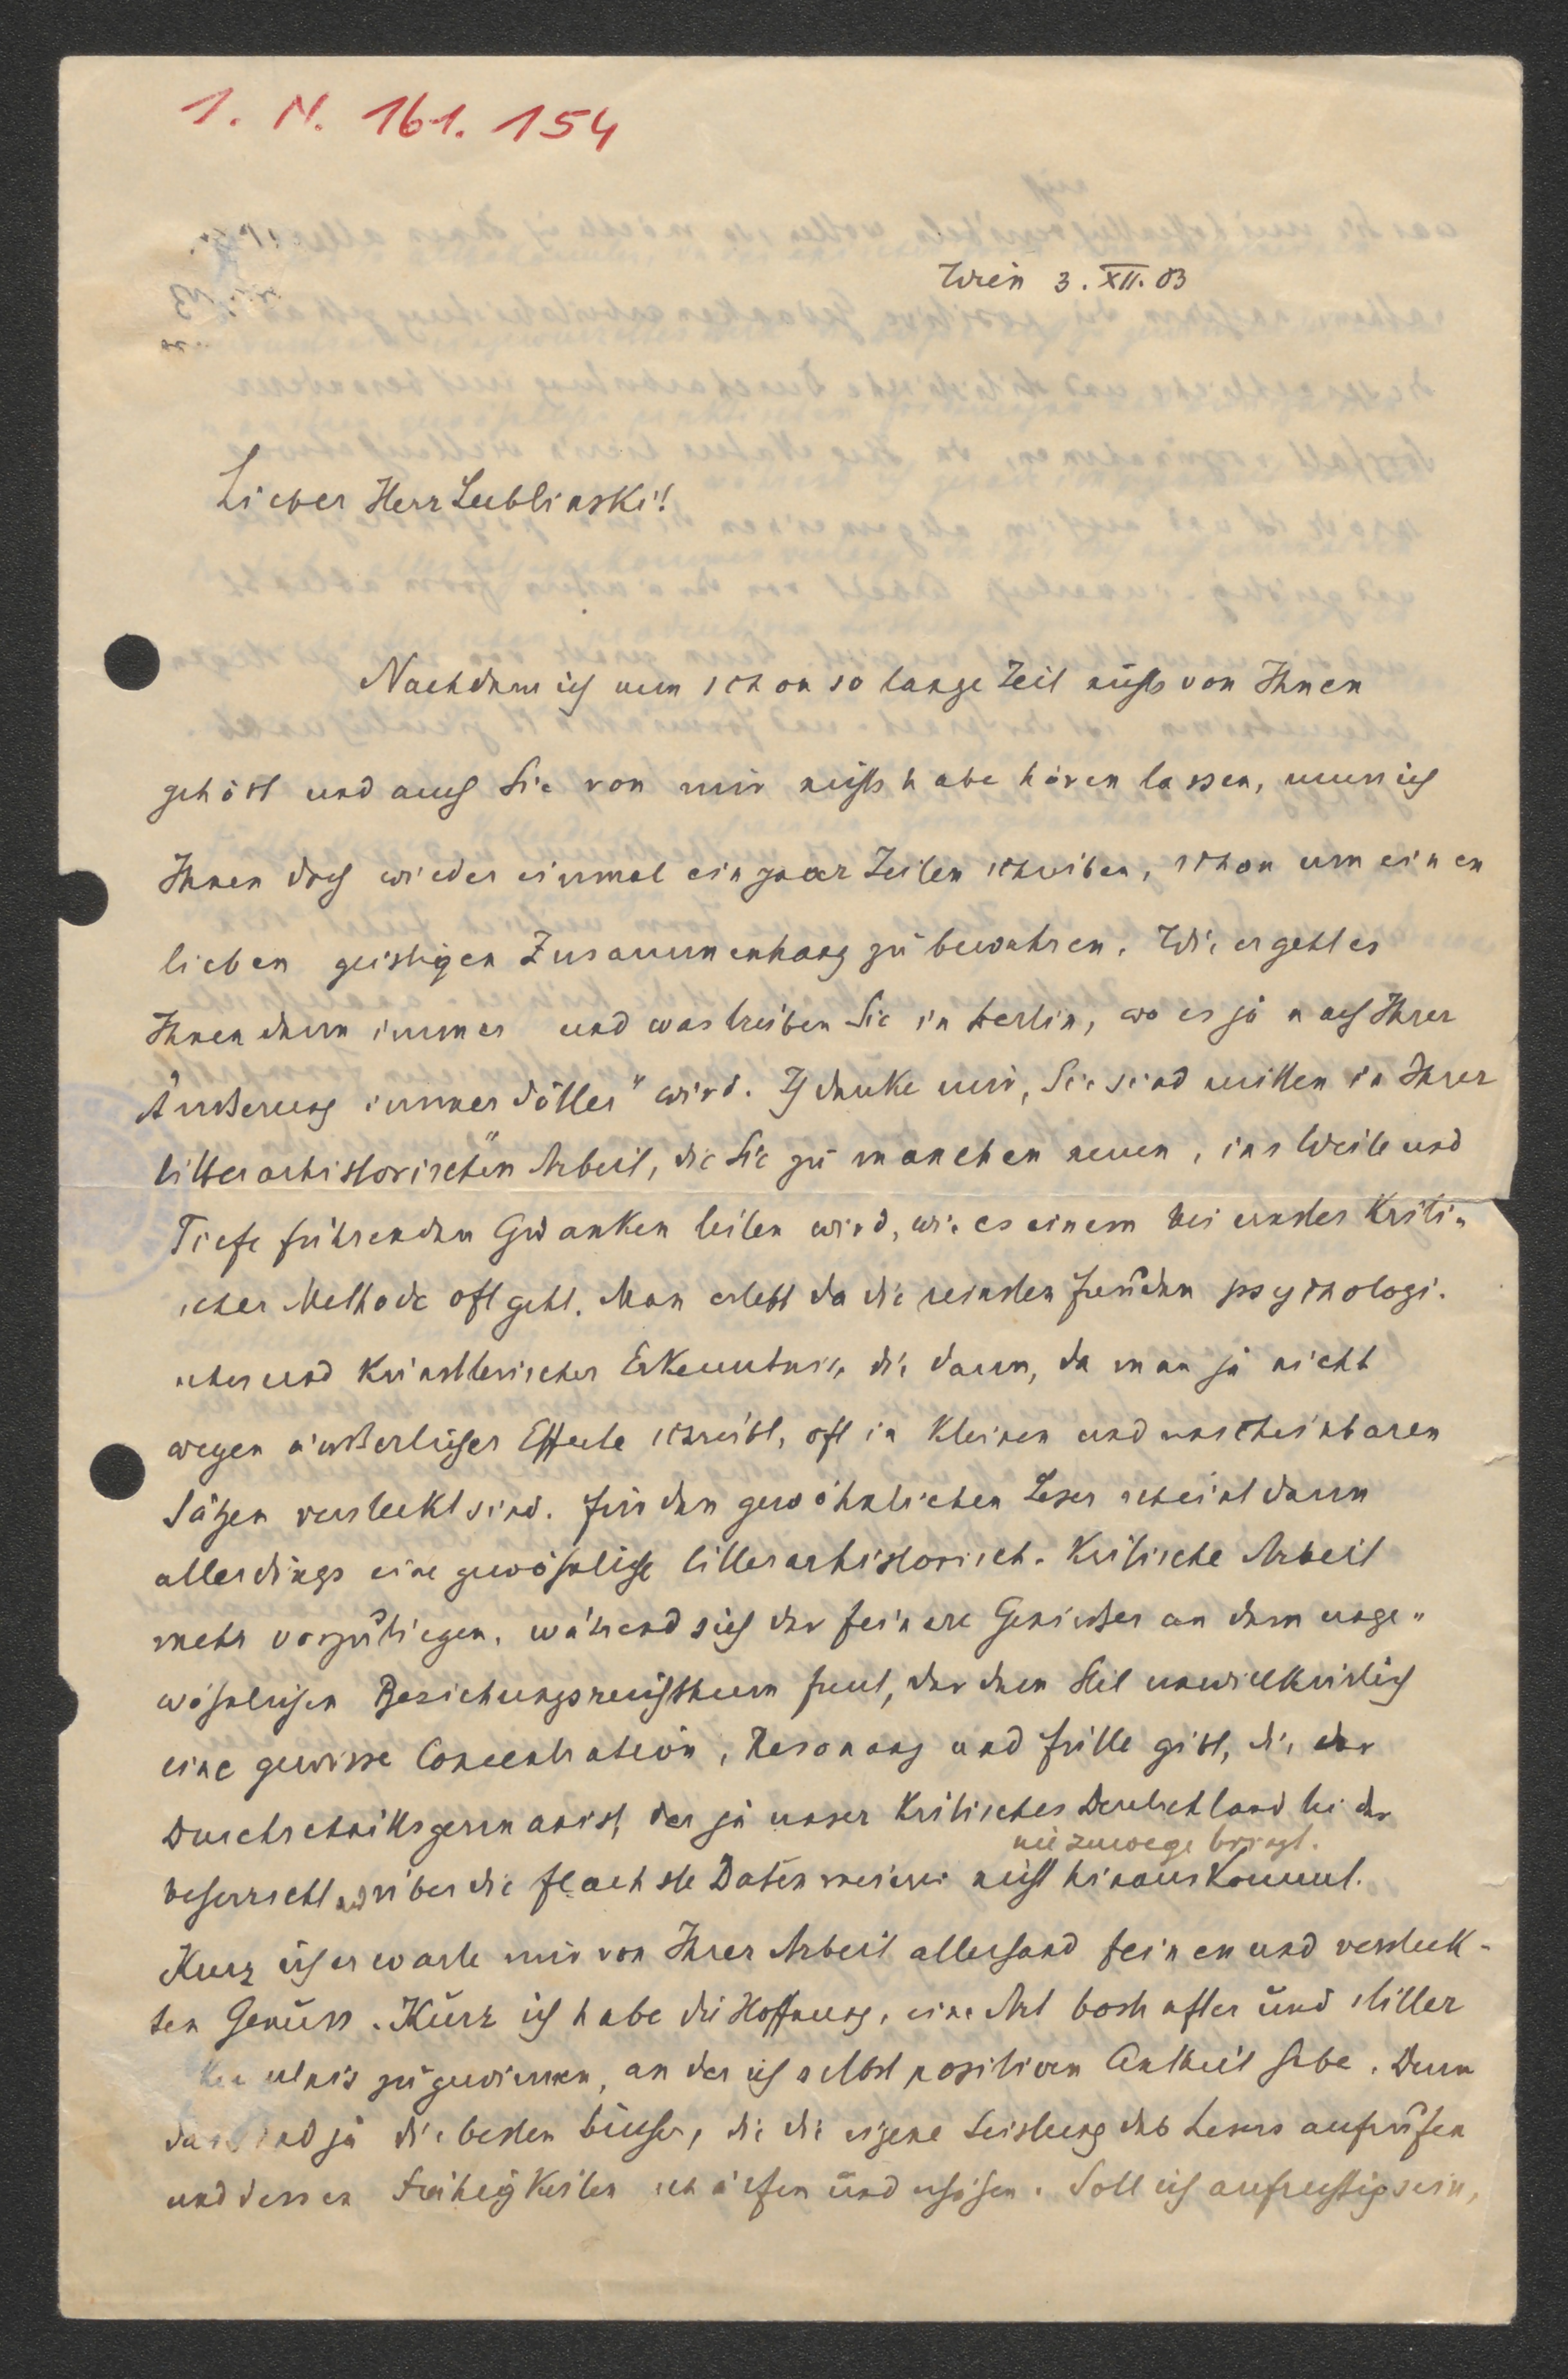 1. N. 161. 154
Wien 3. XII. 03
Lieber Herr Lublinski!
Nachdem ich nun schon so lange Zeit nichts von Ihnen
gehört und auch Sie von mir nichts habe hören lassen, muss ich
Ihnen doch wieder einmal ein paar Zeilen schreiben, schon um einen
lieben geistigen Zusammenhang zu bewahren. Wie ergeht es
Ihnen denn immer und was treiben Sie in Berlin, wo es ja nach Ihrer
Äußerung immer „döller“ wird. Ich denke mir, Sie sind mitten in Ihrer
litterarhistorischen Arbeit, die Sie zu manchen neuen, ins Weite und
Tiefe führenden Gedanken leiten wird, wie es einem bei ernster kriti-
scher Methode oft geht. Man erlebt da die reinsten Freuden psychologi-
scher und künstlerischer Erkenntnis, die dann, da man ja nicht
wegen äußerlicher Effecte schreibt, oft in kleinen und unscheinbaren
Sätzen versteckt sind. Für den gewöhnlichen Leser scheint dann
allerdings eine gewöhnliche litterarhistorisch-kritische Arbeit
mehr vorzuliegen, während sich der feinere Genießer an dem unge-
wöhnlichen Beziehungsreichthum freut, der dem Stil unwillkürlich
eine gewisse Concentration, Resonanz und Fülle gibt, die der
Durchschnittsgermanist, der ja unser kritisches Deutschland leider
nie zuwege bringt.
beherrscht und über die flachste Daten nicht hinauskommt.
Kurz ich erwarte mir von Ihrer Arbeit allerhand feinen und versteck-
ten Genuss. Kurz ich habe die Hoffnung, eine Art boshafter und stiller
Kenntnis zu gewinnen, an der ich selbst positiven Antheil habe. Denn
das sind ja die besten Bücher, die die eigene Leistung des Lesers aufrufen
und dessen Fähigkeiten schärfen und erhöhen. Soll ich aufrichtig sein,